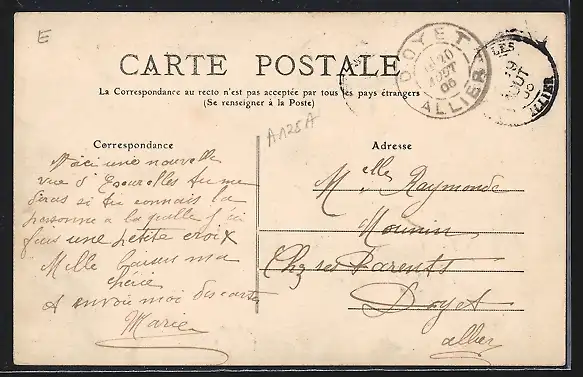 E
CARTE POSTALE
La Correspondance au recto n'est pas acceptée par tous les pays étrangers
(Se renseigner à la Poste)
DOYET
20
AOUT
06
ALLIER
LES
19
AOUT
06
ALLIER
A125A
Correspondance
Voici une nouvelle
vue d'Ezeurelles tu me
diras si tu connais la
personne a laquelle j'ai
fais une petite croix
Mille baisers ma
chérie
et envoie moi des cartes
Marie
Adresse
Melle Raymonde
Mounin
Chez ses Parents
Doyet
allier